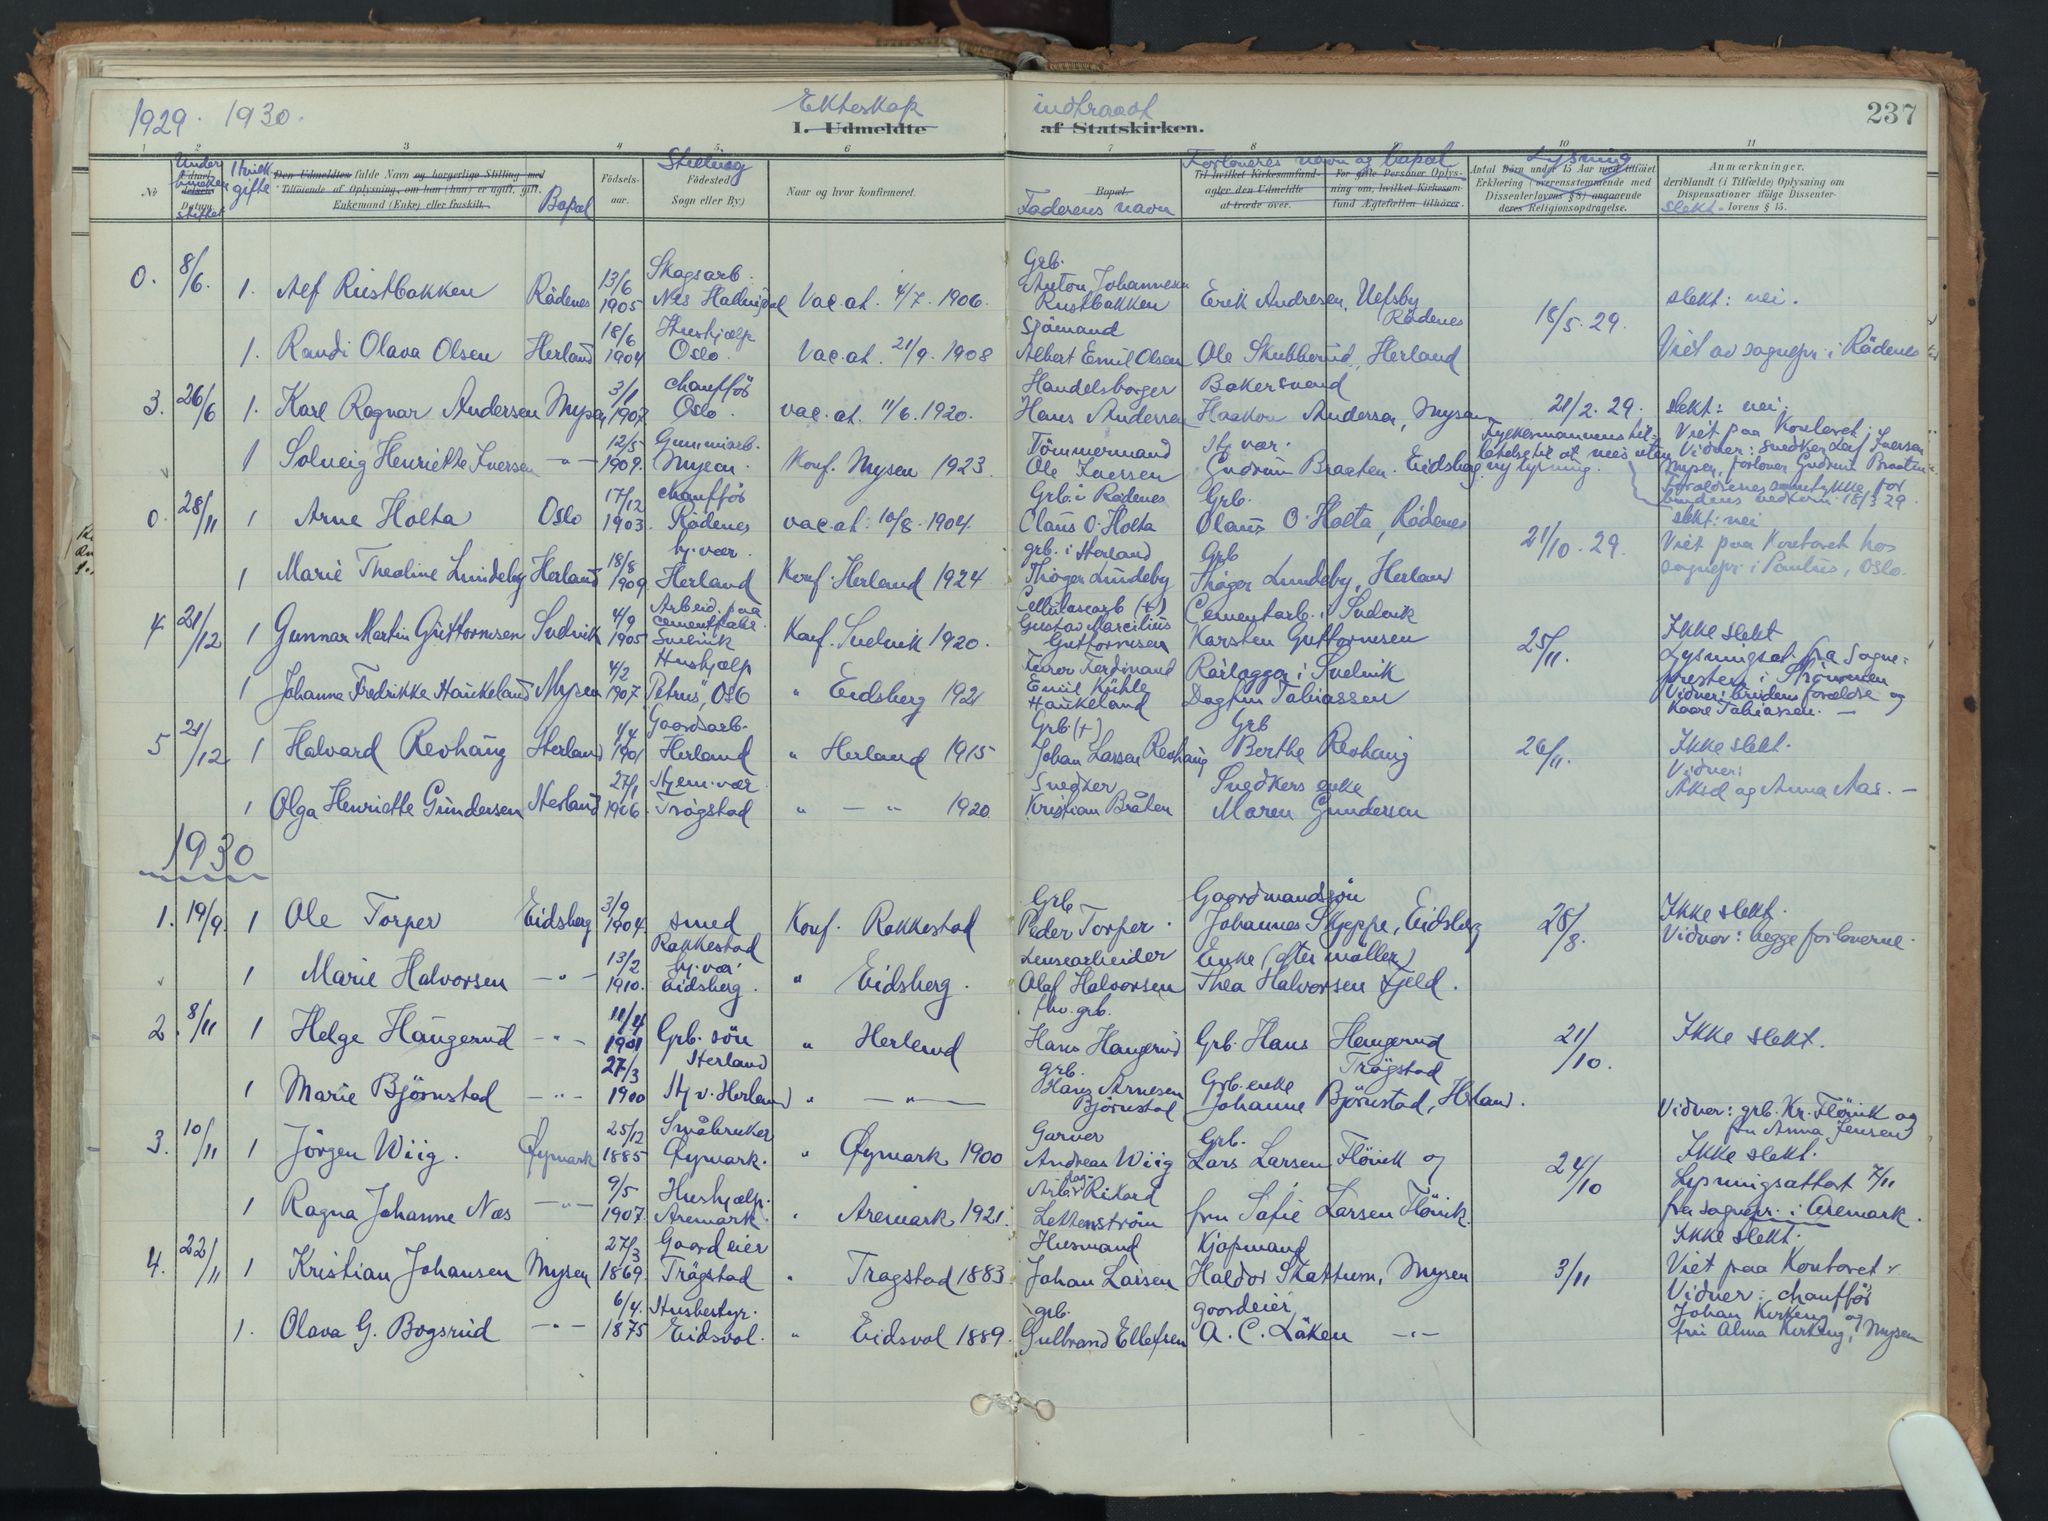 1929. 1930.
Ekteskap indtraadt
I. Udmeldte af Statskirken.
237
1 2 3 4 5 6 7 8 10 11
No
Udmeldelsens Datum.
Hvilk gifte
Den Udmeldtes fulde Navn og borgerlige Stilling med Tilføiende af Oplysning, om han (hun) er ugift, gift, Enkemand (Enke) eller fraskilt.
Bopæl
Fødselsaar.
Stilling
Fødested (Sogn eller By)
Naar og hvor konfirmeret.
Bopæl.
Faderens navn
Forloveres navn og bopæl
Til hvilket Kirkesamfund agter den Udmeldte at træde over.
For gifte Personer Oplysning om, hvilket Kirkesamfund Ægtefællen tilhører.
Lysning
Antal Børn under 15 Aar med tilføiet Erklæring (overensstemmende med Dissenterlovens § 8) angaaende deres Religionsopdragelse.
Anmærkninger,
deriblandt (i Tilfælde) Oplysning om Dispensationer ifølge Dissenterlovens § 15.
slekt
0. 8/6. 1. Alf Rustbakken Rödenes 13/6 1905 Skogsarb. Nes Hallingdal Vac. at. 4/7. 1906. Grb. Anton Johannesen Rustbakken Erik Andresen, Ulfsby Rödenes 18/5. 29. slekt: nei.
1. Randi Olava Olsen Herland 18/6 1904 Hushjælp Oslo. Vac. at. 21/9. 1908 Sjömand Albert Emil Olsen Ole Skubberud, Herland Viet av sognepr. i Rödenes
3. 26/6 1. Karl Ragnar Andersen Mysen 3/1 1907. chauffør Oslo. vac. at. 11/6. 1920. Handelsborger Hans Andersen Bakersvend Haakon Andersen, Mysen 21/2. 29. slekt: nei.
1 Solveig Henriette Iversen -"- 12/5 1909. Gummiarb. Mysen. Konf. Mysen 1923. Tömmermand Ole Iversen Hj. vær. Gudrun Braaten. Eidsberg Fylkesmannens tilladelse til at vies uten ny lysning. Viet paa Kontoret. Vidner: snedker Leif Iversen Mysen, forlover Gudrun Braaten. Foreldrenes samtykke for brudens vedkom. 18/3. 29.
0. 28/11 1 Arne Holta Oslo 17/12 1903. chauffør Rödenes vac. at: 10/8. 1904. Grb. i Rödenes Olaus O. Holta Grb. Olaus O. Holta, Rödenes 21/10. 29. slekt: nei
1 Marie Theoline Lundeby Herland 18/8 1909. hj. vær. Herland Konf. Herland 1924 grb. i Herland Thöger Lundeby Grb Thöger Lundeby, Herland Viet paa Kontoret hos sognepr. i Paulus, Oslo.
4. 21/12 1 Gunnar Martin Guttormsen Svelvik 4/9 1905 Arbeid. paa cementfabr. Svelvik Konf. Svelvik 1920. Cellulosearb (+) Gustav Marcilius Guttormsen Cementarb. i Svelvik Karsten Guttormsen 25/11. Ikke slekt
1 Johanne Fredrikke Haukeland Mysen 4/2 1907. Hushjælp Petrus, Oslo " Eidsberg 1921 Ferdinand Emil Kühle Haukeland Rörlegger i Svelvik Dagfin Tobiassen Lysningsat. fra Sognepresten i Strömmen Vidner: brudens forældre og Kaare Tobiassen. —
5 21/12 1 Halvard Revhaug Herland 4/4 1901 Gaardsarb. Herland " Herland 1915 Grb. (+) Johan Larsen Revhaug Grb Berthe Revhaug 26/11. Ikke slekt.
1 Olga Henriette Gundersen Herland 27/1 1906. Hjem. vær. Trögstad " — " 1920 Snedker Kristian Bråten Snedkers enke Maren Gundersen Vidner: Aksel og Anna Aas. —
1930
1. 19/9. 1 Ole Torper Eidsberg 3/9 1904. smed Rakkestad Konf. Rakkestad Grb Peder Torper. Gaardmandssön Johannes Skjeppe, Eidsberg 28/8. Ikke slekt. Vidner: begge forloverne.
1 Marie Halvorsen -"- 13/2 1910. hj. vær Eidsberg. " Eidsberg. Lensearbeider Olaf Halvorsen Enke (efter möller) Thea Halvorsen Fjeld.
2. 8/11 1 Helge Haugerud -"- 11/4 1901 Grb. sön Herland " Herland fhv. grb. Hans Haugerud Grb. Hans Haugerud Trögstad 21/10. Ikke slekt.
1 Marie Björnstad -"- 27/3 1900 Hj. v. Herland " — " — grb. Hans Arnesen Björnstad Grb. enke Johanne Björnstad, Herland.
3. 10/11 1 Jörgen Wiig. Öymark 25/12 1885 Småbruker Öymark. " Öymark 1900 Garver Andreas Wiig Grb. Lars Larsen Flövik og 24/10 Vidner: grb. Kr. Flövik og fru Anna Jensen Ikke slekt.
1 Ragna Johanne Næs -"- 9/5 1907. Hushjælp. Aremark. " Aremark 1921. Rikard Lettenström fru Sofie Larsen Flövik. Lysningsattest 7/11 fra sognepr. i Aremark.
4. 22/11 1 Kristian Johansen Mysen 27/3 1869. Gaardeier Trögstad " Trögstad 1883 Husmand Johan Larsen Kjöpmand Haldor Skattum, Mysen 3/11 Ikke slekt. Viet paa Kontoret.
1. Olava G. Bogsrud -"- 6/4. 1875 Husbestyr. Eidsvol. " Eidsvol 1889. grb. Gulbrand Ellefsen gaardeier, A. C. Låken -"- Vidner: chauffør Johan Kirkeng og fru Alma Kirkeng, Mysen